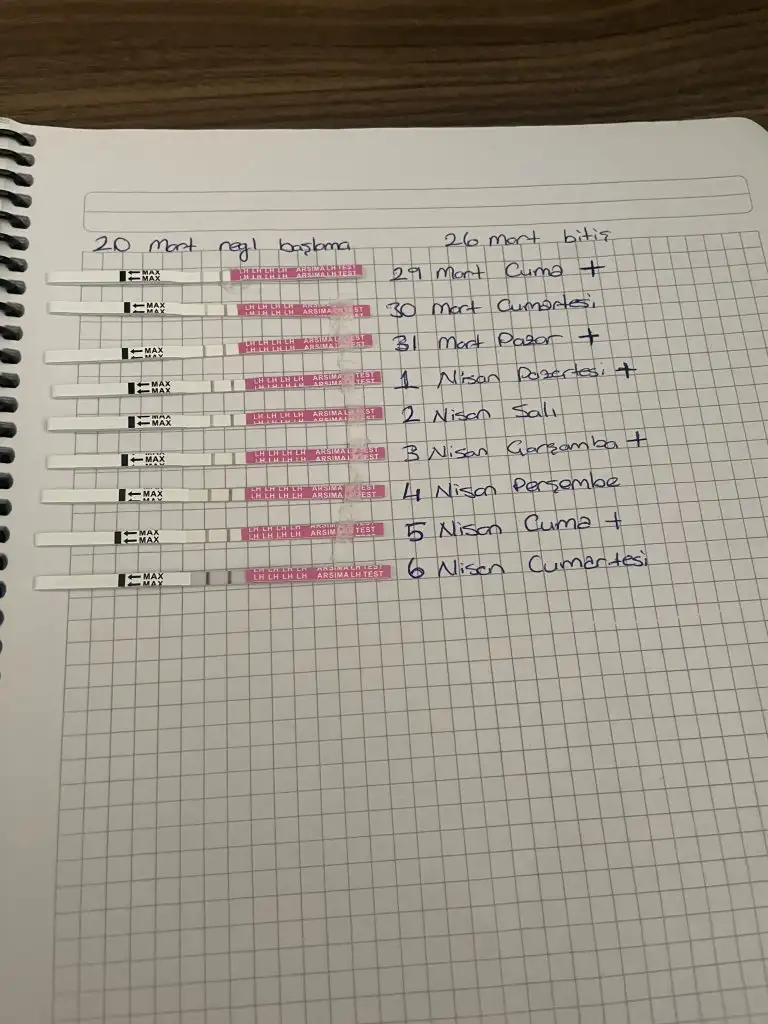 20 Mart regl başlama 26 mart bitiş
MAX MAX LH LH LH LH ARSIMA LH TEST 29 Mart Cuma +
MAX MAX LH LH LH LH ARSIMA LH TEST 30 Mart Cumartesi
MAX MAX LH LH LH LH ARSIMA LH TEST 31 Mart Pazar +
MAX MAX LH LH LH LH ARSIMA LH TEST 1 Nisan Pazartesi +
MAX MAX LH LH LH LH ARSIMA LH TEST 2 Nisan Salı
MAX MAX LH LH LH LH ARSIMA LH TEST 3 Nisan Çarşamba +
MAX MAX LH LH LH LH ARSIMA LH TEST 4 Nisan Perşembe
MAX MAX LH LH LH LH ARSIMA LH TEST 5 Nisan Cuma +
MAX MAX LH LH LH LH ARSIMA LH TEST 6 Nisan Cumartesi